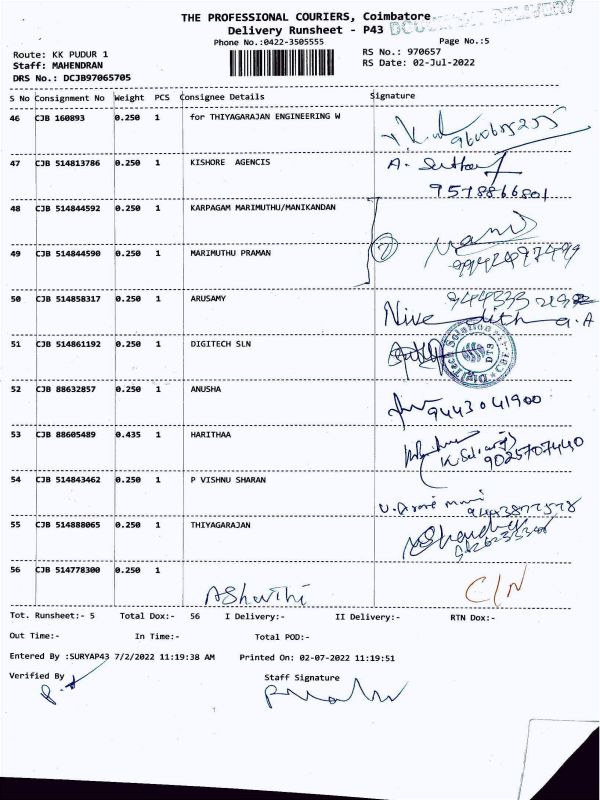 THE PROFESSIONAL COURIERS, Coimbatore
Delivery Runsheet - P43
DOCUMENT DELIVERY
Phone No.:0422-3505555
Page No.:5
Route: KK PUDUR 1
RS No.: 970657
Staff: MAHENDRAN
RS Date: 02-Jul-2022
DRS No.: DCJB97065705
S No Consignment No Weight PCS Consignee Details Signature
46 CJB 160893 0.250 1 for THIYAGARAJAN ENGINEERING W
47 CJB 514813786 0.250 1 KISHORE AGENCIS A.
9578866801
48 CJB 514844592 0.250 1 KARPAGAM MARIMUTHU/MANIKANDAN
2 Mani
49 CJB 514844590 0.250 1 MARIMUTHU PRAMAN
9942497499
50 CJB 514858317 0.250 1 ARUSAMY
Nivedith a.A
51 CJB 514861192 0.250 1 DIGITECH SLN
52 CJB 88632857 0.250 1 ANUSHA
9443041900
53 CJB 88605489 0.435 1 HARITHAA
9025707440
54 CJB 514843462 0.250 1 P VISHNU SHARAN
55 CJB 514888065 0.250 1 THIYAGARAJAN
56 CJB 514778300 0.250 1
AShwthi C/N
Tot. Runsheet:- 5 Total Dox:- 56 I Delivery:- II Delivery:- RTN Dox:-
Out Time:- In Time:- Total POD:-
Entered By :SURYAP43 7/2/2022 11:19:38 AM Printed On: 02-07-2022 11:19:51
Verified By Staff Signature